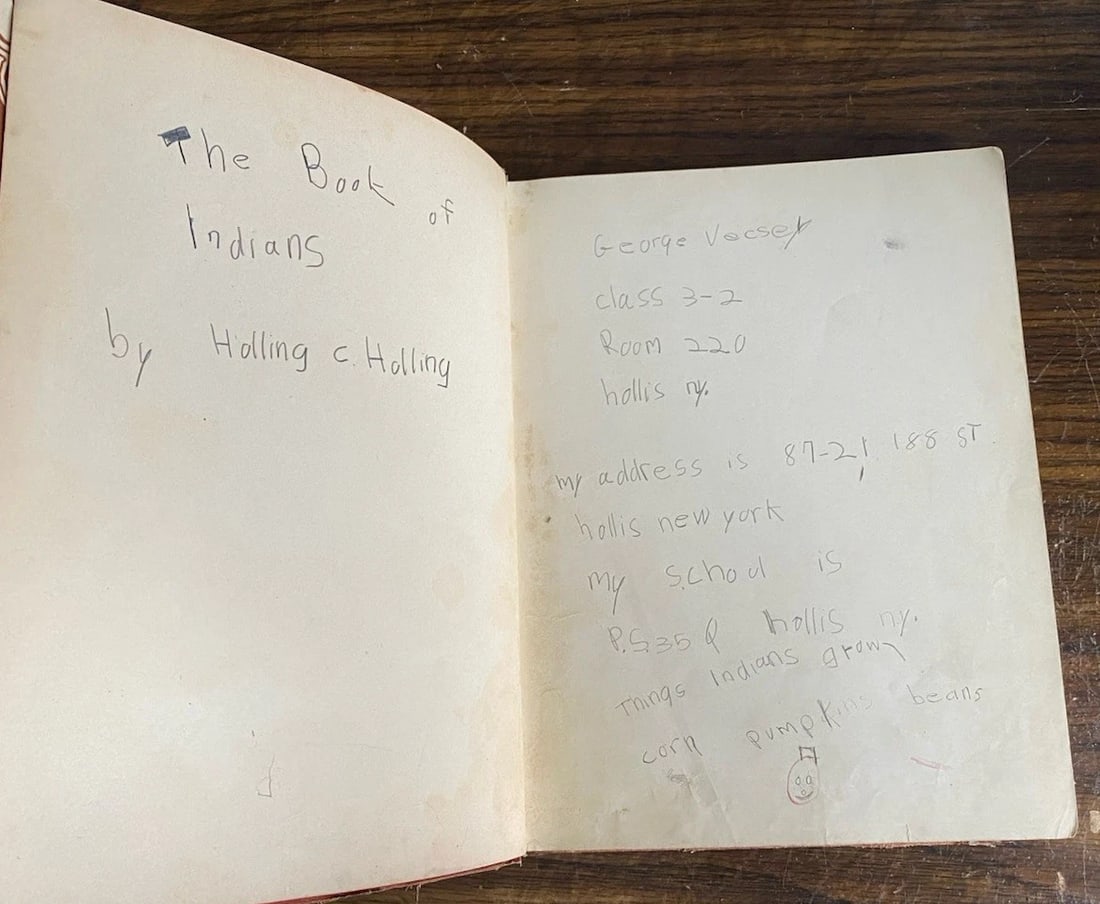 The Book
of
Indians
by Holling c. Holling
George Vecsey
class 3-2
Room 220
hollis ny.
my address is 87-21, 188 ST.
hollis new york
my school is
P.S. 35 Q hollis ny.
Things Indians grown
corn pumpkins beans